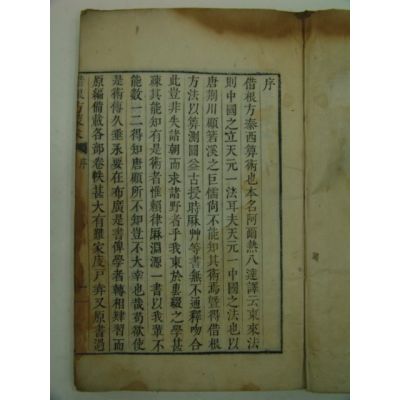 序
借根方泰西算術也本名阿爾熱八達譯云東來法
則中國之立天元一法耳夫天元一中國之法也以
唐荆川顧箬溪之巨儒尙不能知其術焉曁得借根
方法以算測圓益古授時厤艸等書無不通釋吻合
此豈非失諸朝而求諸野者乎我東於惠綴之學甚
疎其能知有是術者惟賴律厤淵源一書以我輩不
能數一二得知唐顧所不知豈不大幸也哉苟欲使
是術傳久垂永要在布廣是書俾學者轉相肄習而
原編備載各部卷帙甚大有難家庋戶弆又原書過
借根方 序